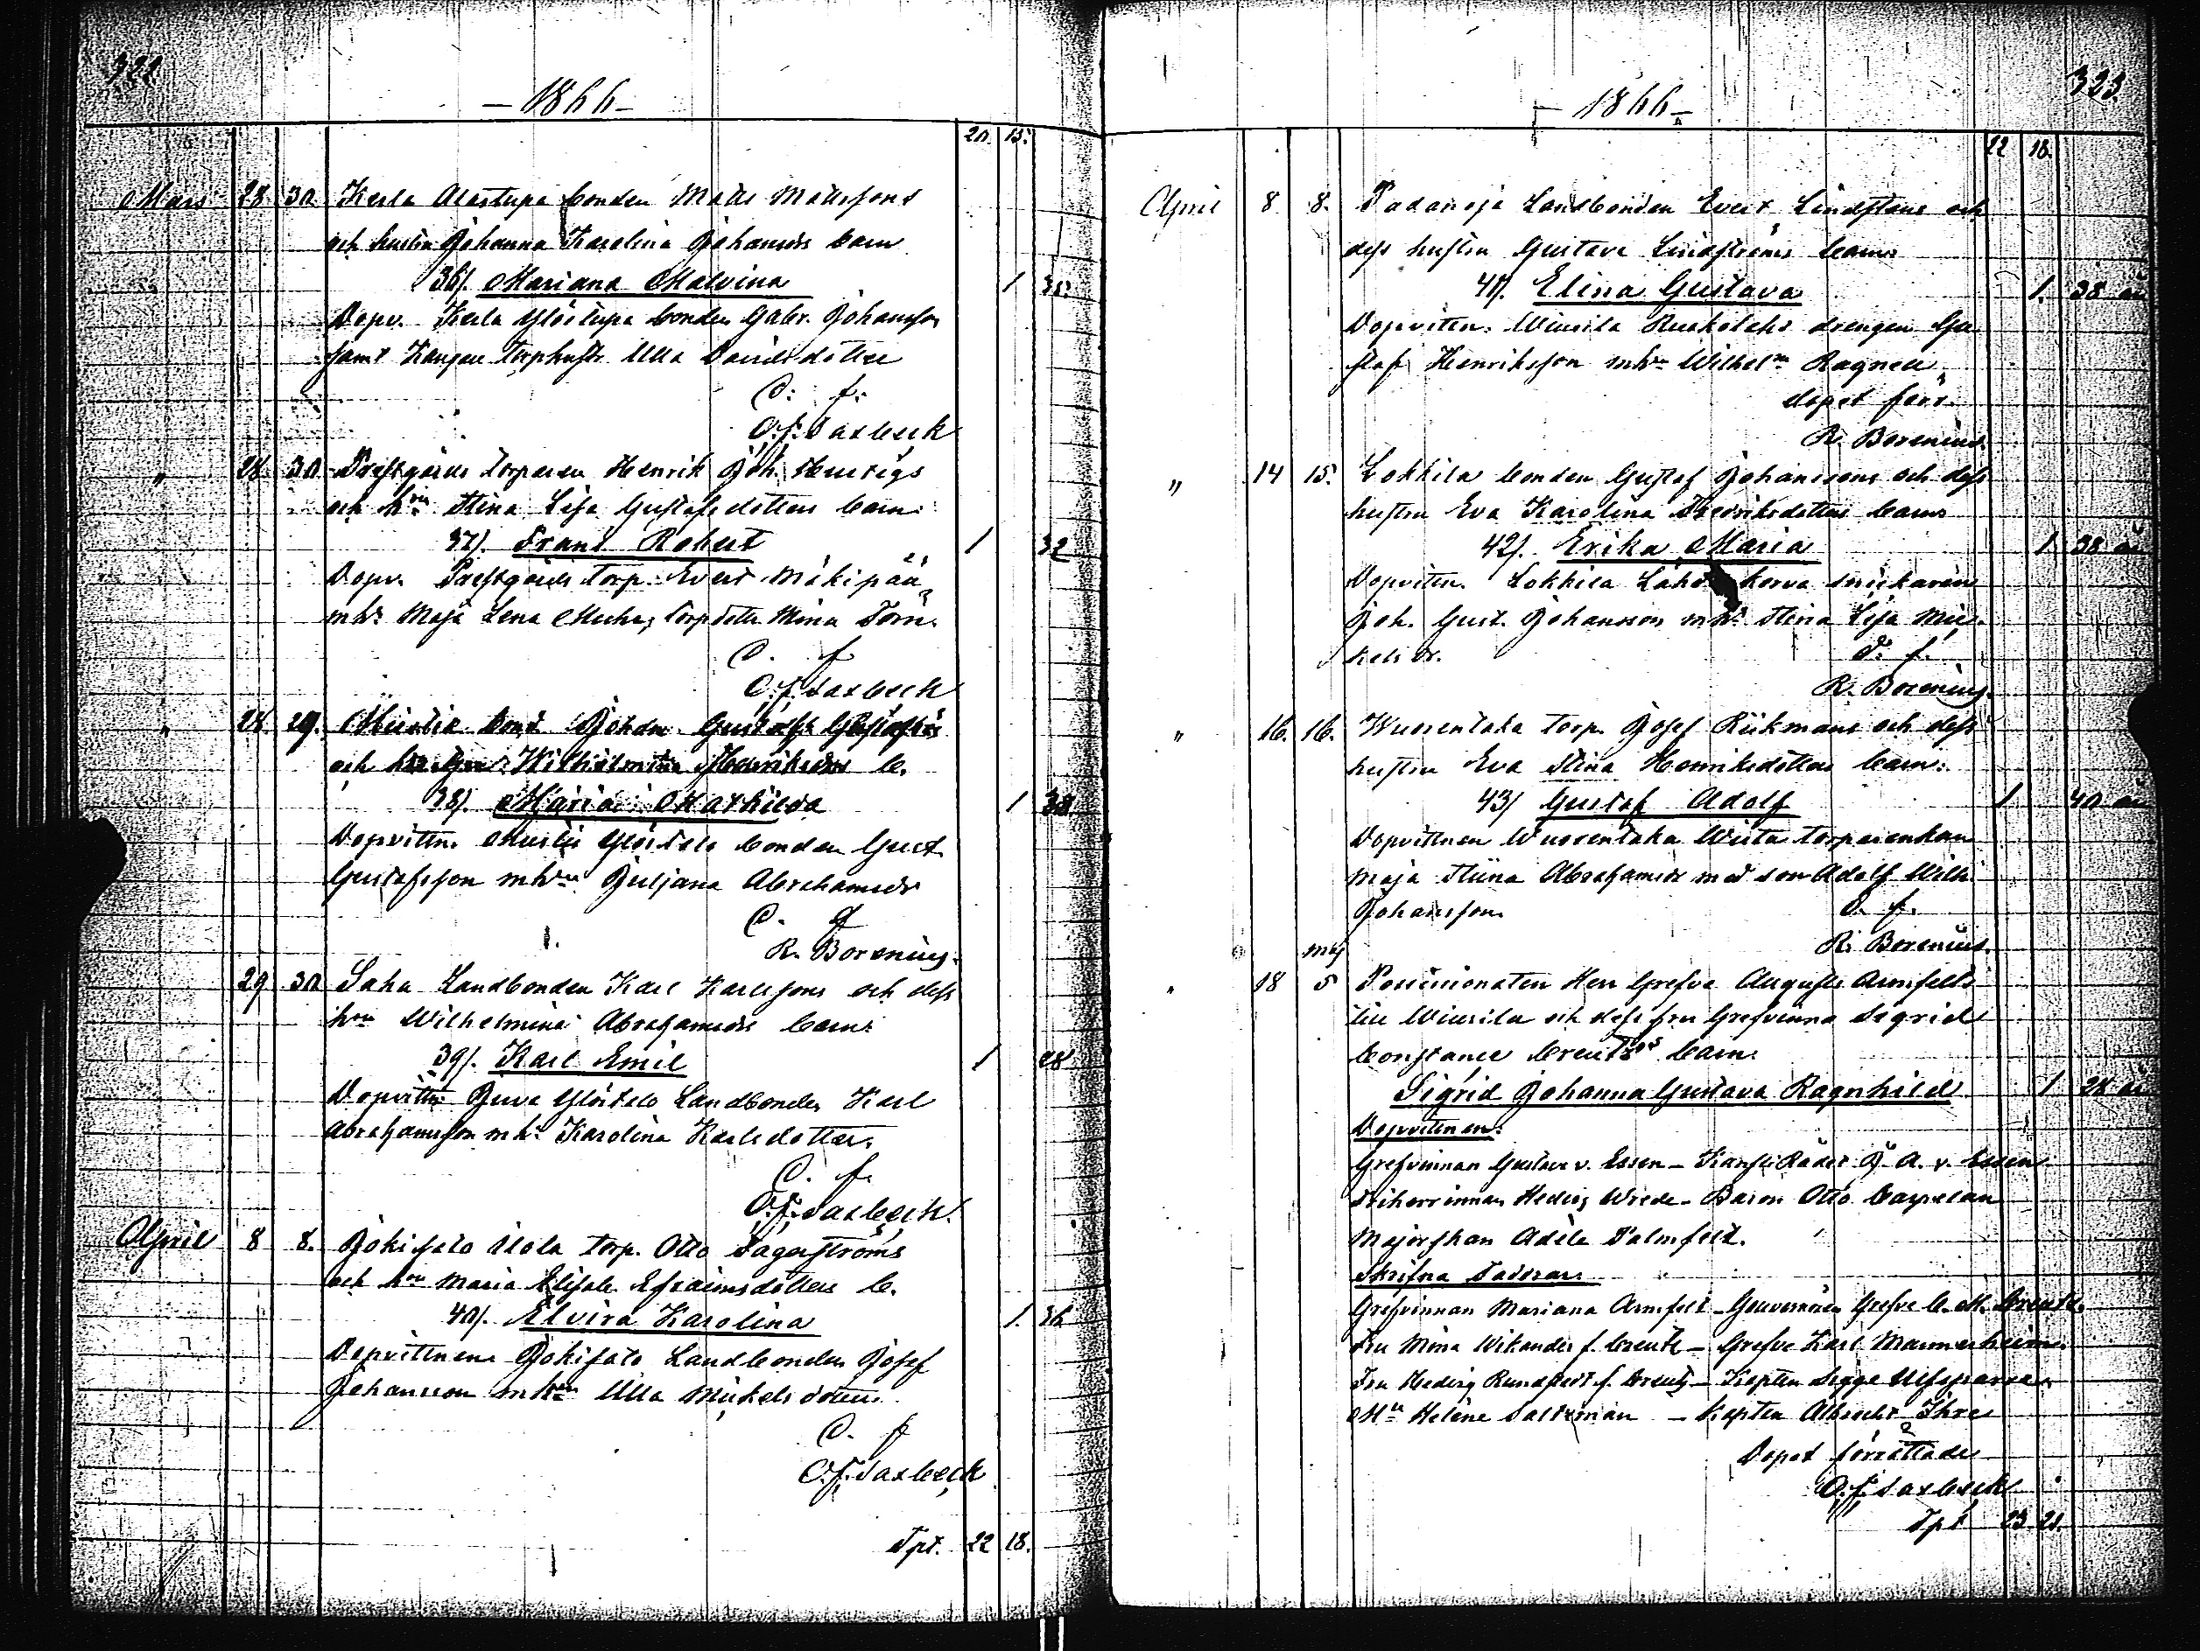 322.
- 1866 -
20. 15.
Mars 28. 30. Kerla Alastupa bonden Matts Mattssons
och hustru Johanna Karolina Johansdrs barn
36). Mariana Malvina 1 35.
Dopv. Kerla Ylöstupa bonden Gabr. Johansson
samt Kangare torphustr. Ulla Davidsdotter
D. f.
O. f. Saxbeck
" 28. 30. Prestgårds torparen Henrik Joh. Hurtigs
och hru Stina Lisa Gustafsdotters barn.
37). Frans Robert 1 32
Dopv. Prestgårds torp. Evert Mäkipää
mhu Maja Lena, torpdottr Mina Törn.
D. f.
O. f. Saxbeck
" 28. 29. bond Johan Gustafs
och hru Wilhelmina Henriksdrs b.
38). Maria Mathilda 1 38
Dopvittn. Ylöstalo bonden Gust.
Gustafsson mhru Juljana Abrahamsdr
D. f.
R. Borenius.
29 30 Saha Landbonden Karl Karlssons och dess
hru Wilhelmina Abrahamsdrs barn.
39). Karl Emil 1 28
Dopvittn. Juva Ylöstalo Landbonden Karl
Abrahamsson mhu Karolina Karlsdotter.
D. f.
O. f. Saxbeck.
April 8 8. Jokisato Alola torp. Otto Lagerströms
och hru Maria Elisab. Efraimsdotters b.
40). Elvira Karolina 1. 36
Dopvittnen Jokisato Landbonden Josef
Johansson mhru Ulla Mickelsdotter.
D. f.
O. f. Saxbeck
Tpt. 22 18.
323.
- 1866 -
22 18.
April 8 8. Padanoja Landbonden Evert Lindstens och
dess hustru Gustava Lindströms barn
41). Elina Gustava 1. 38 år
Dopvitten. Wiurila drengen Gu
staf Henriksson mhru Wilhelma Ragnell
dopet förr.
R. Borenius.
" 14 15. Lokkila bonden Gustaf Johanssons och dess
hustru Eva Karolina Fredriksdotters barn
42). Erika Maria 1 38 år
Dopvitten. Lokkila korva snickaren
Joh. Gust. Johansson mhu Stina Lisa Mic-
kelsdr. D. f.
R. Borenius.
" 16. 16. Wuorentaka torp. Josef Rickmans och dess
hustru Eva Stina Henriksdotters barn.
43) Gustaf Adolf 1 40 år
Dopvittnen Wuorentaka torparenkan
Maja Stina Abrahamsdr med son Adolf Wilh.
Johansson. D. f.
R. Borenius.
maj
" 18 5 Possessionaten Herr Grefve Augusts Armfelts
till Wiurila och dess fru Grefvinna Sigrid
Constance Creutz's barn.
Sigrid Johanna Gustava Ragnhild 1 28 år
Dopvittnen:
Grefvinnan Gustava v. Essen - Kansli Rådet J. A. v. Essen
Friherrinnan Hedvig Wrede - Baron Otto Carpelan
Majorskan Adèle Palmfelt.
Skrifna Faddrar
Grefvinnan Mariana Armfelt - Gouvernören Grefve C. M. Creutz.
Fru Mina Wikander f. Creutz - Grefve Karl Mannerheim.
Fru Hedvig Rundstedt f. Creutz - Kapten Sigge Ulfsparre.
Mll Helène Saltzman - Kapten Albrecht Ihre
Dopet förrättade
O. f. Saxbeck
Tpt 23 21.